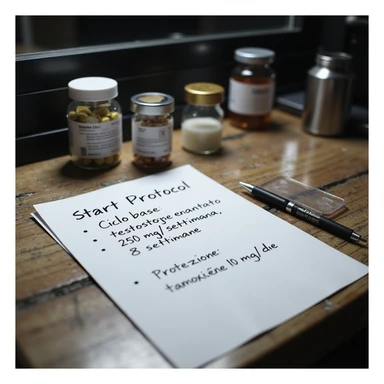 Start Protocol
Ciclo base:
• testostojie enantato
• 250 mg/settimana,
• 8 settimane
Protezione:
• tamoxiēne 10 mg/die